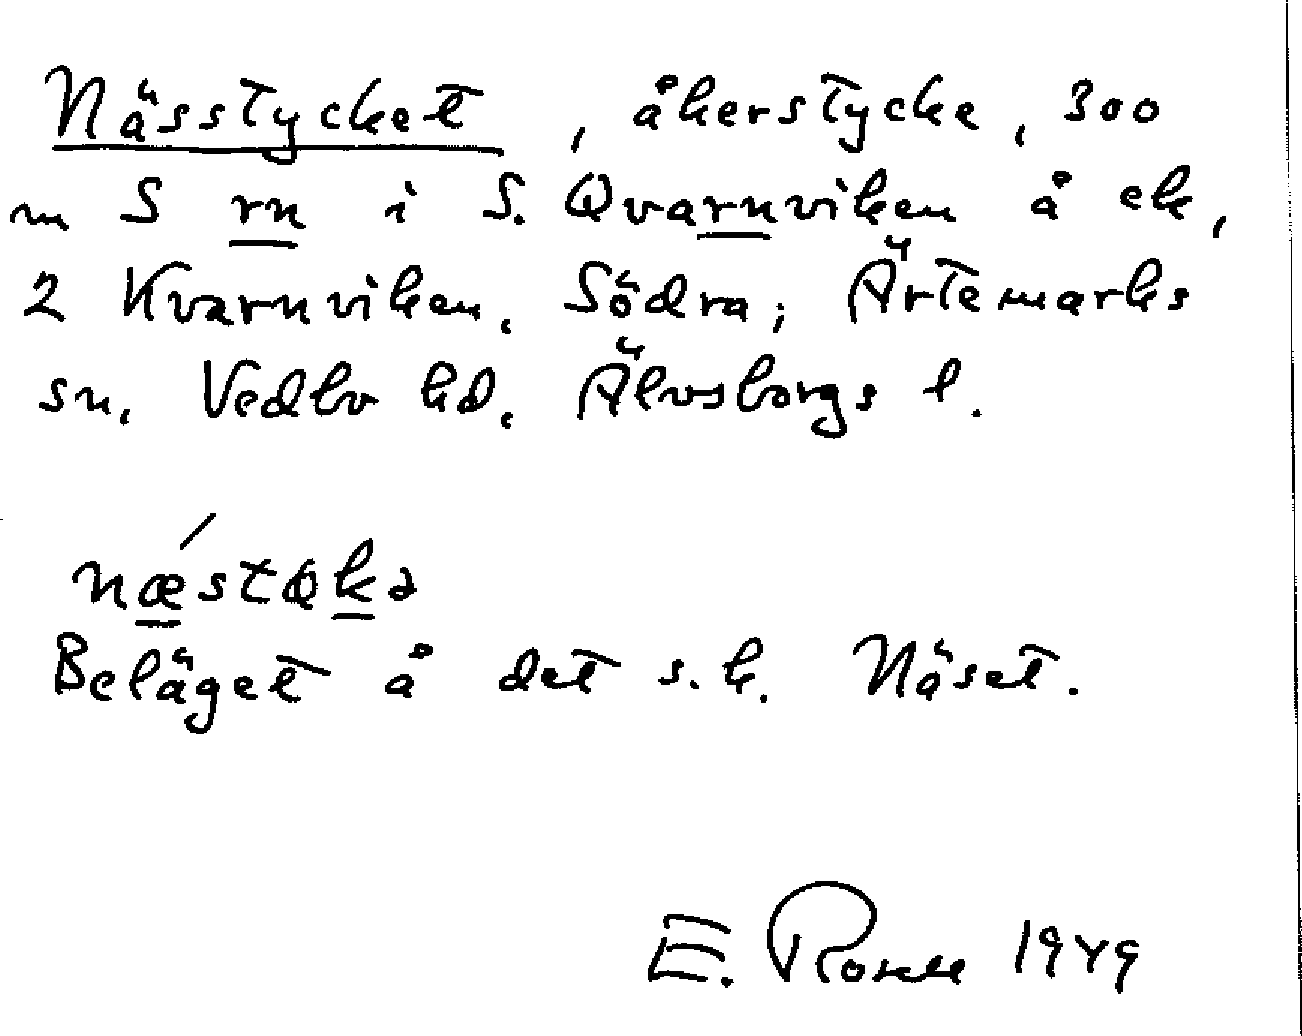 Nässtycket, åkerstycke, 300
m S rn i S. Qvarnviken å ek,
2 Kvarnviken, Södra; Ärtemarks
sn. Vedbo hd. Älvsborgs l.
Beläget å det s.k. Näset.
E. 1949